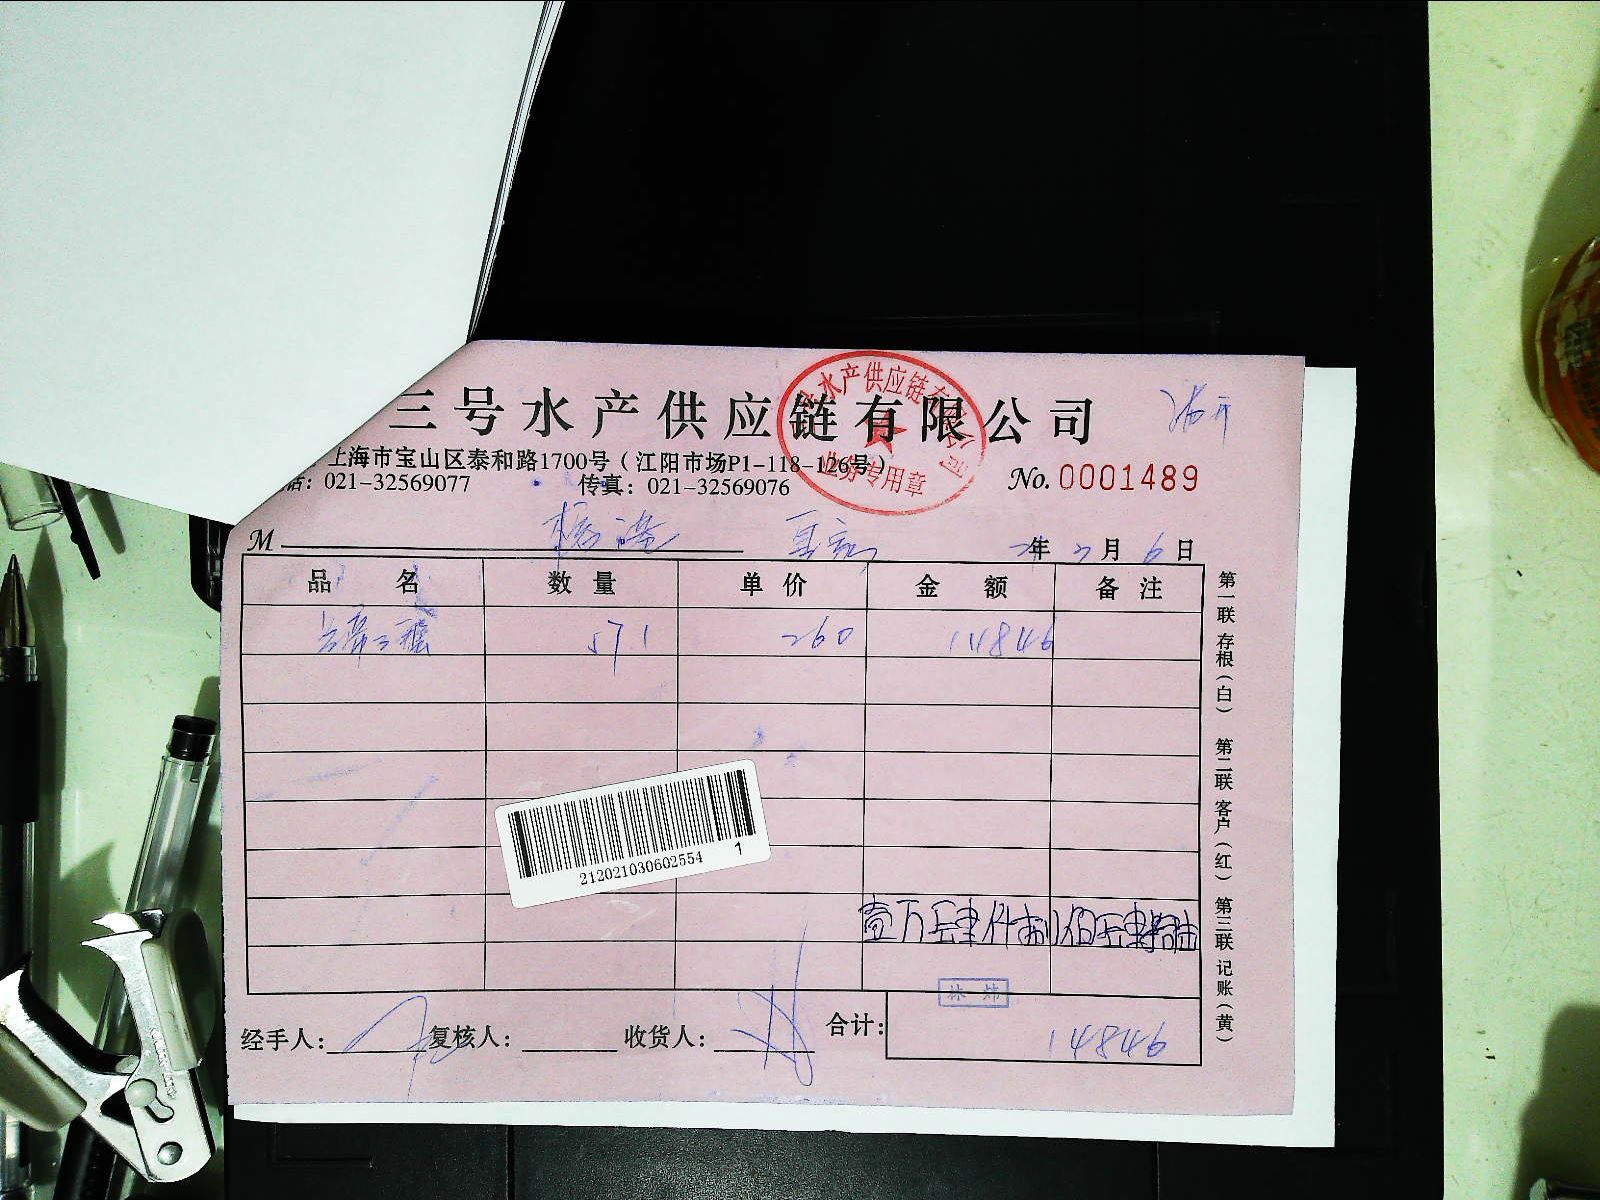 三号水产供应链有限公司
上海市宝山区泰和路1700号（江阳市场P1-118-126号）
话：021-32569077 传真：021-32569076
水产供应链有
业务专用章
No. 0001489
M 年 月 6 日
品 名 数 量 单 价 金 额 备 注
571 260 14846
212021030602554 1
壹万 肆仟 捌佰 肆拾陆
林 炜
经手人： 复核人： 收货人： 合计： 14846
第一联 存根（白） 第二联 客户（红） 第三联 记账（黄）